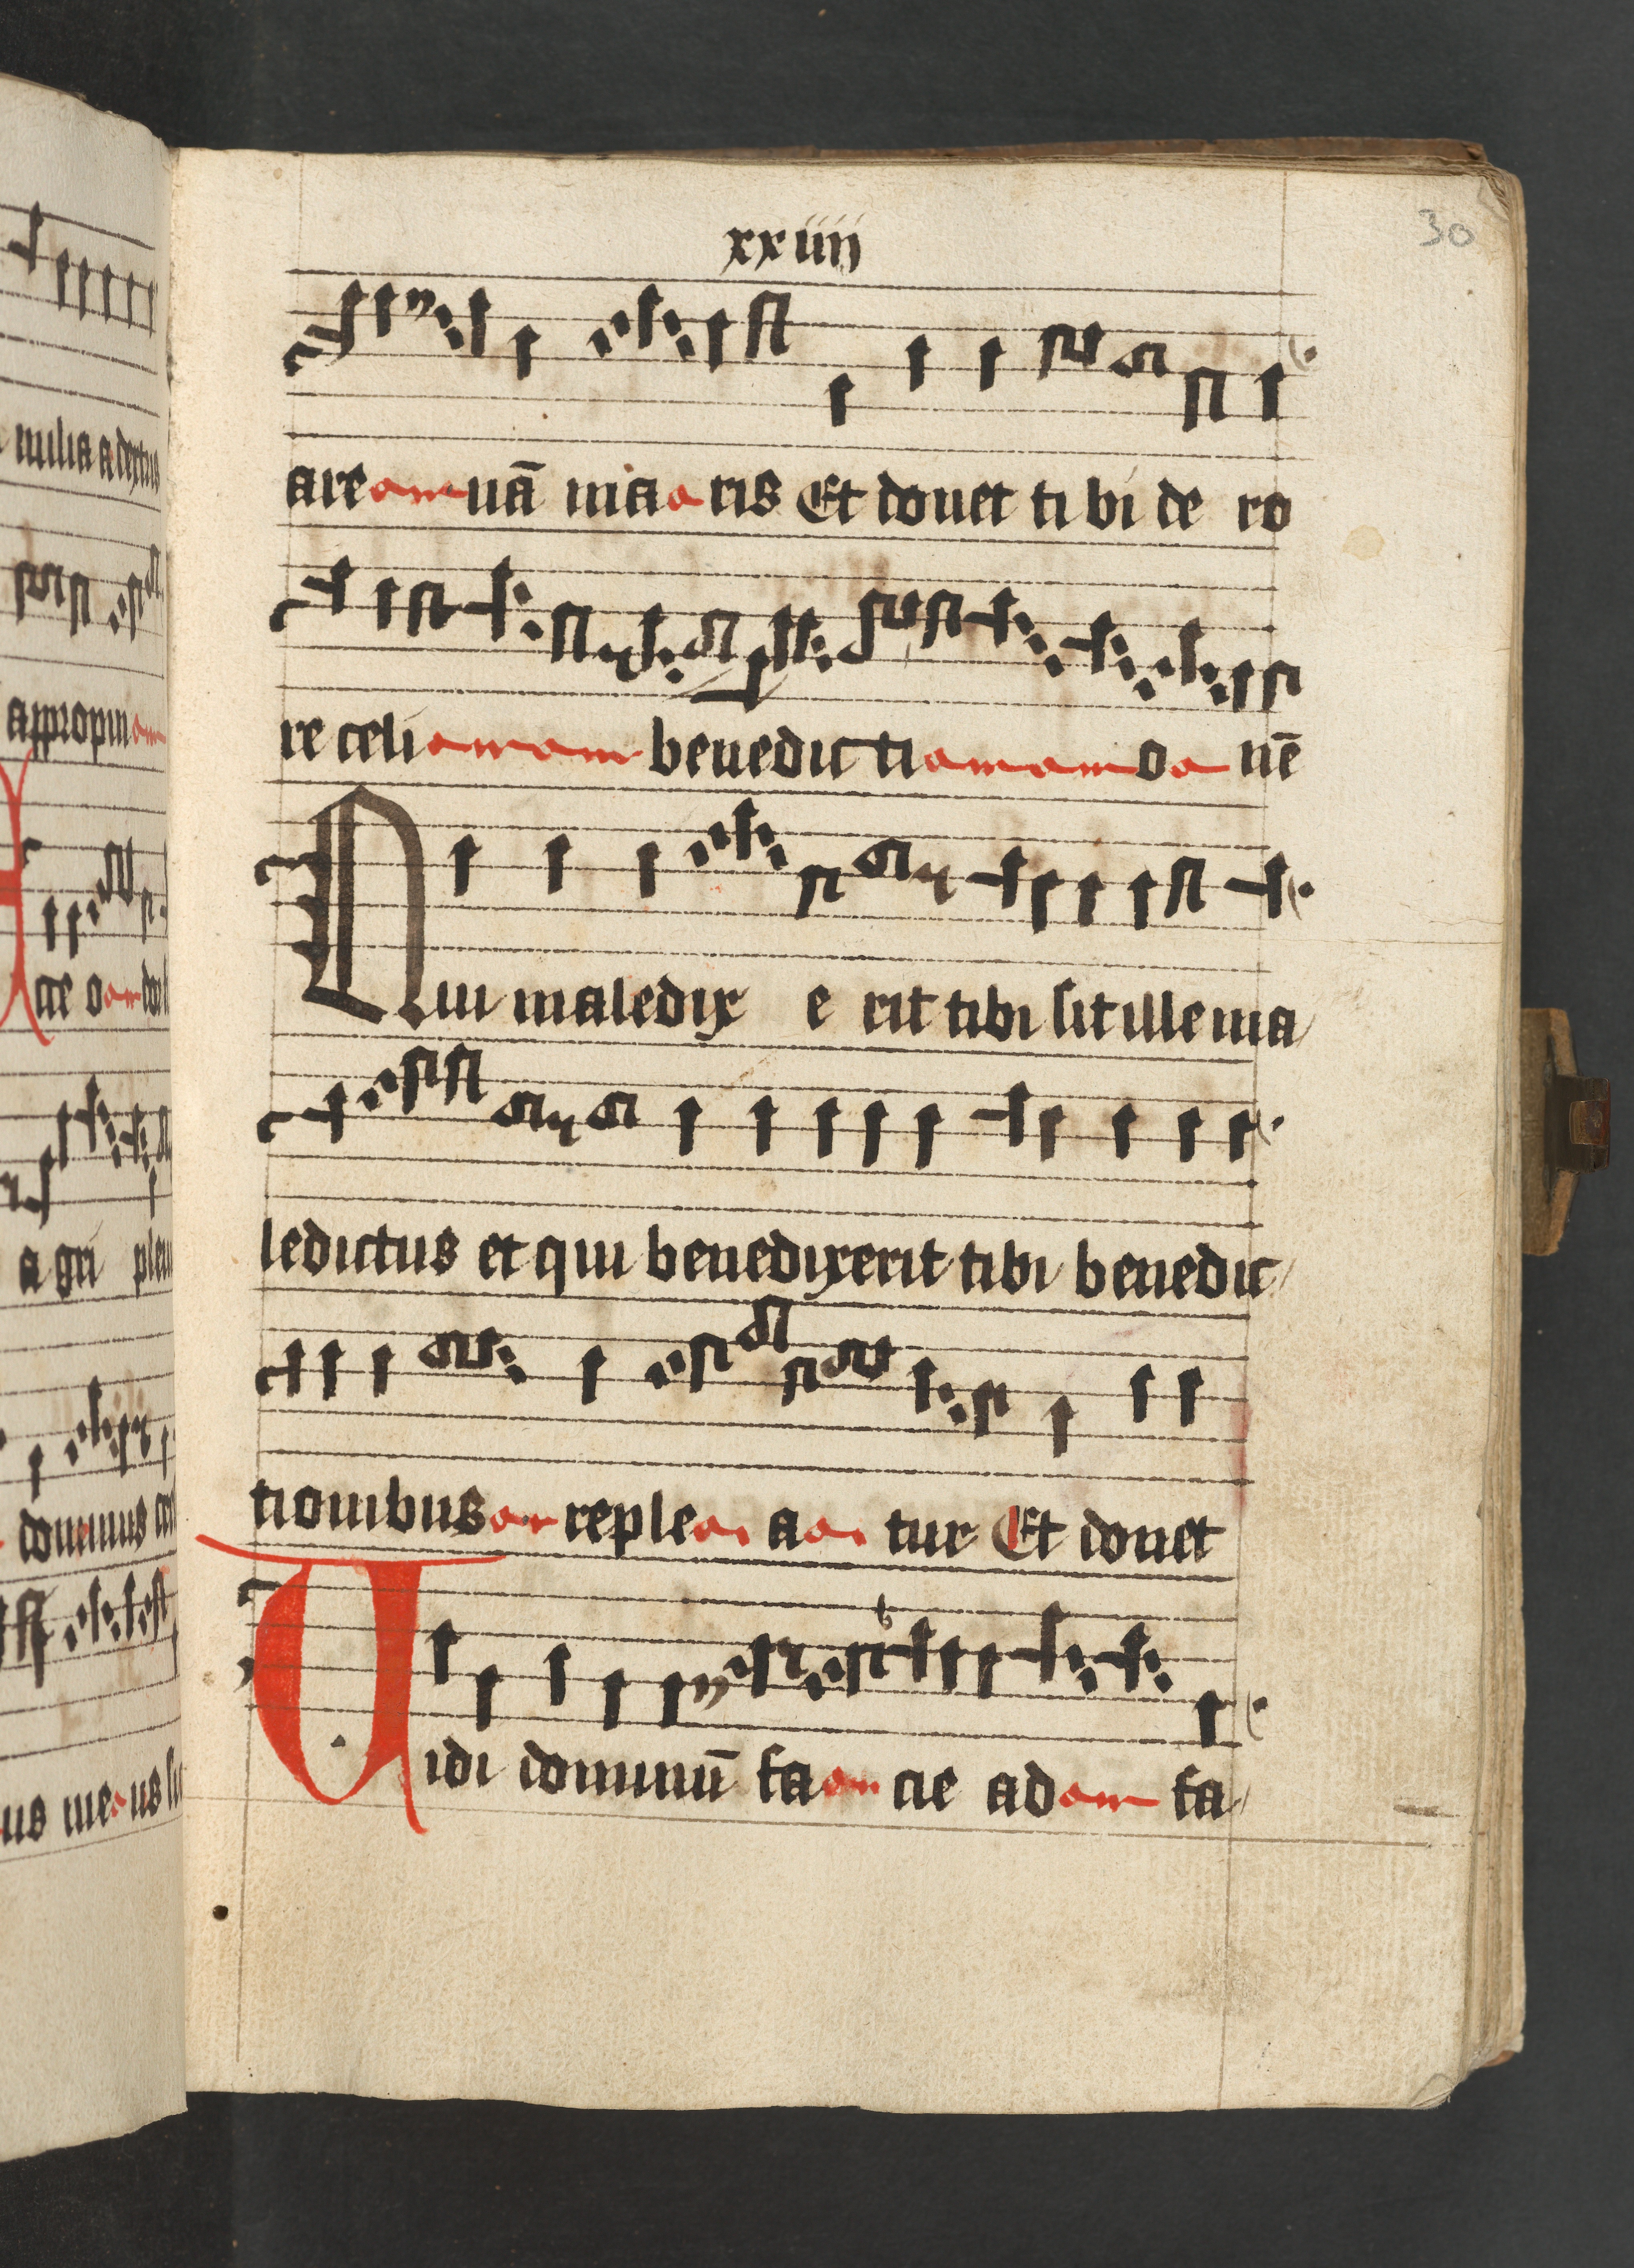 30
xxiiij
are nā maris Et donet ti bi de ro
re celi benedicti o nē
Qui maledix e rit tibi sit ille ma
ledictus et qui benedixerit tibi benedic
tionibus reple a tur Et donet
Uidi dominū fa cie ad fa
milia a dextris
appropin
agri plen
dominus
us meus